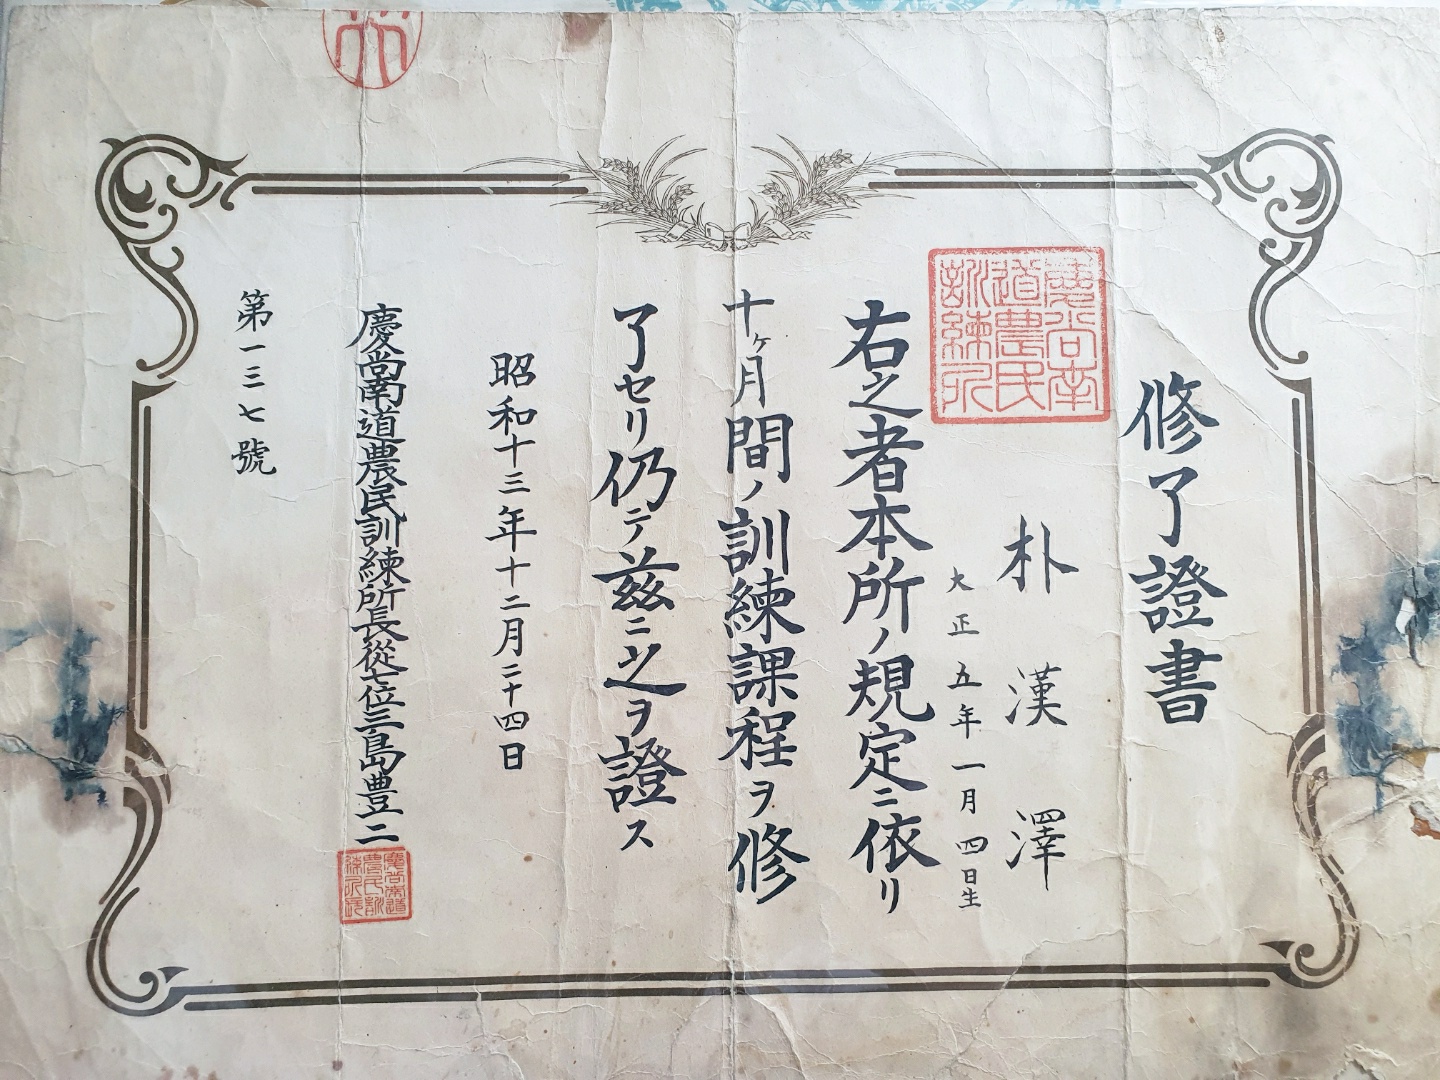 修了證書
朴漢澤
大正五年一月四日生
右之者本所ノ規定ニ依リ
十ヶ月間ノ訓練課程ヲ修
了セリ仍テ茲ニ之ヲ證ス
昭和十三年十二月二十四日
慶尚南道農民訓練所長從七位三島豊二
第一三七號
慶尚南
道農民
訓練所
慶尚南道
農民訓
練所長